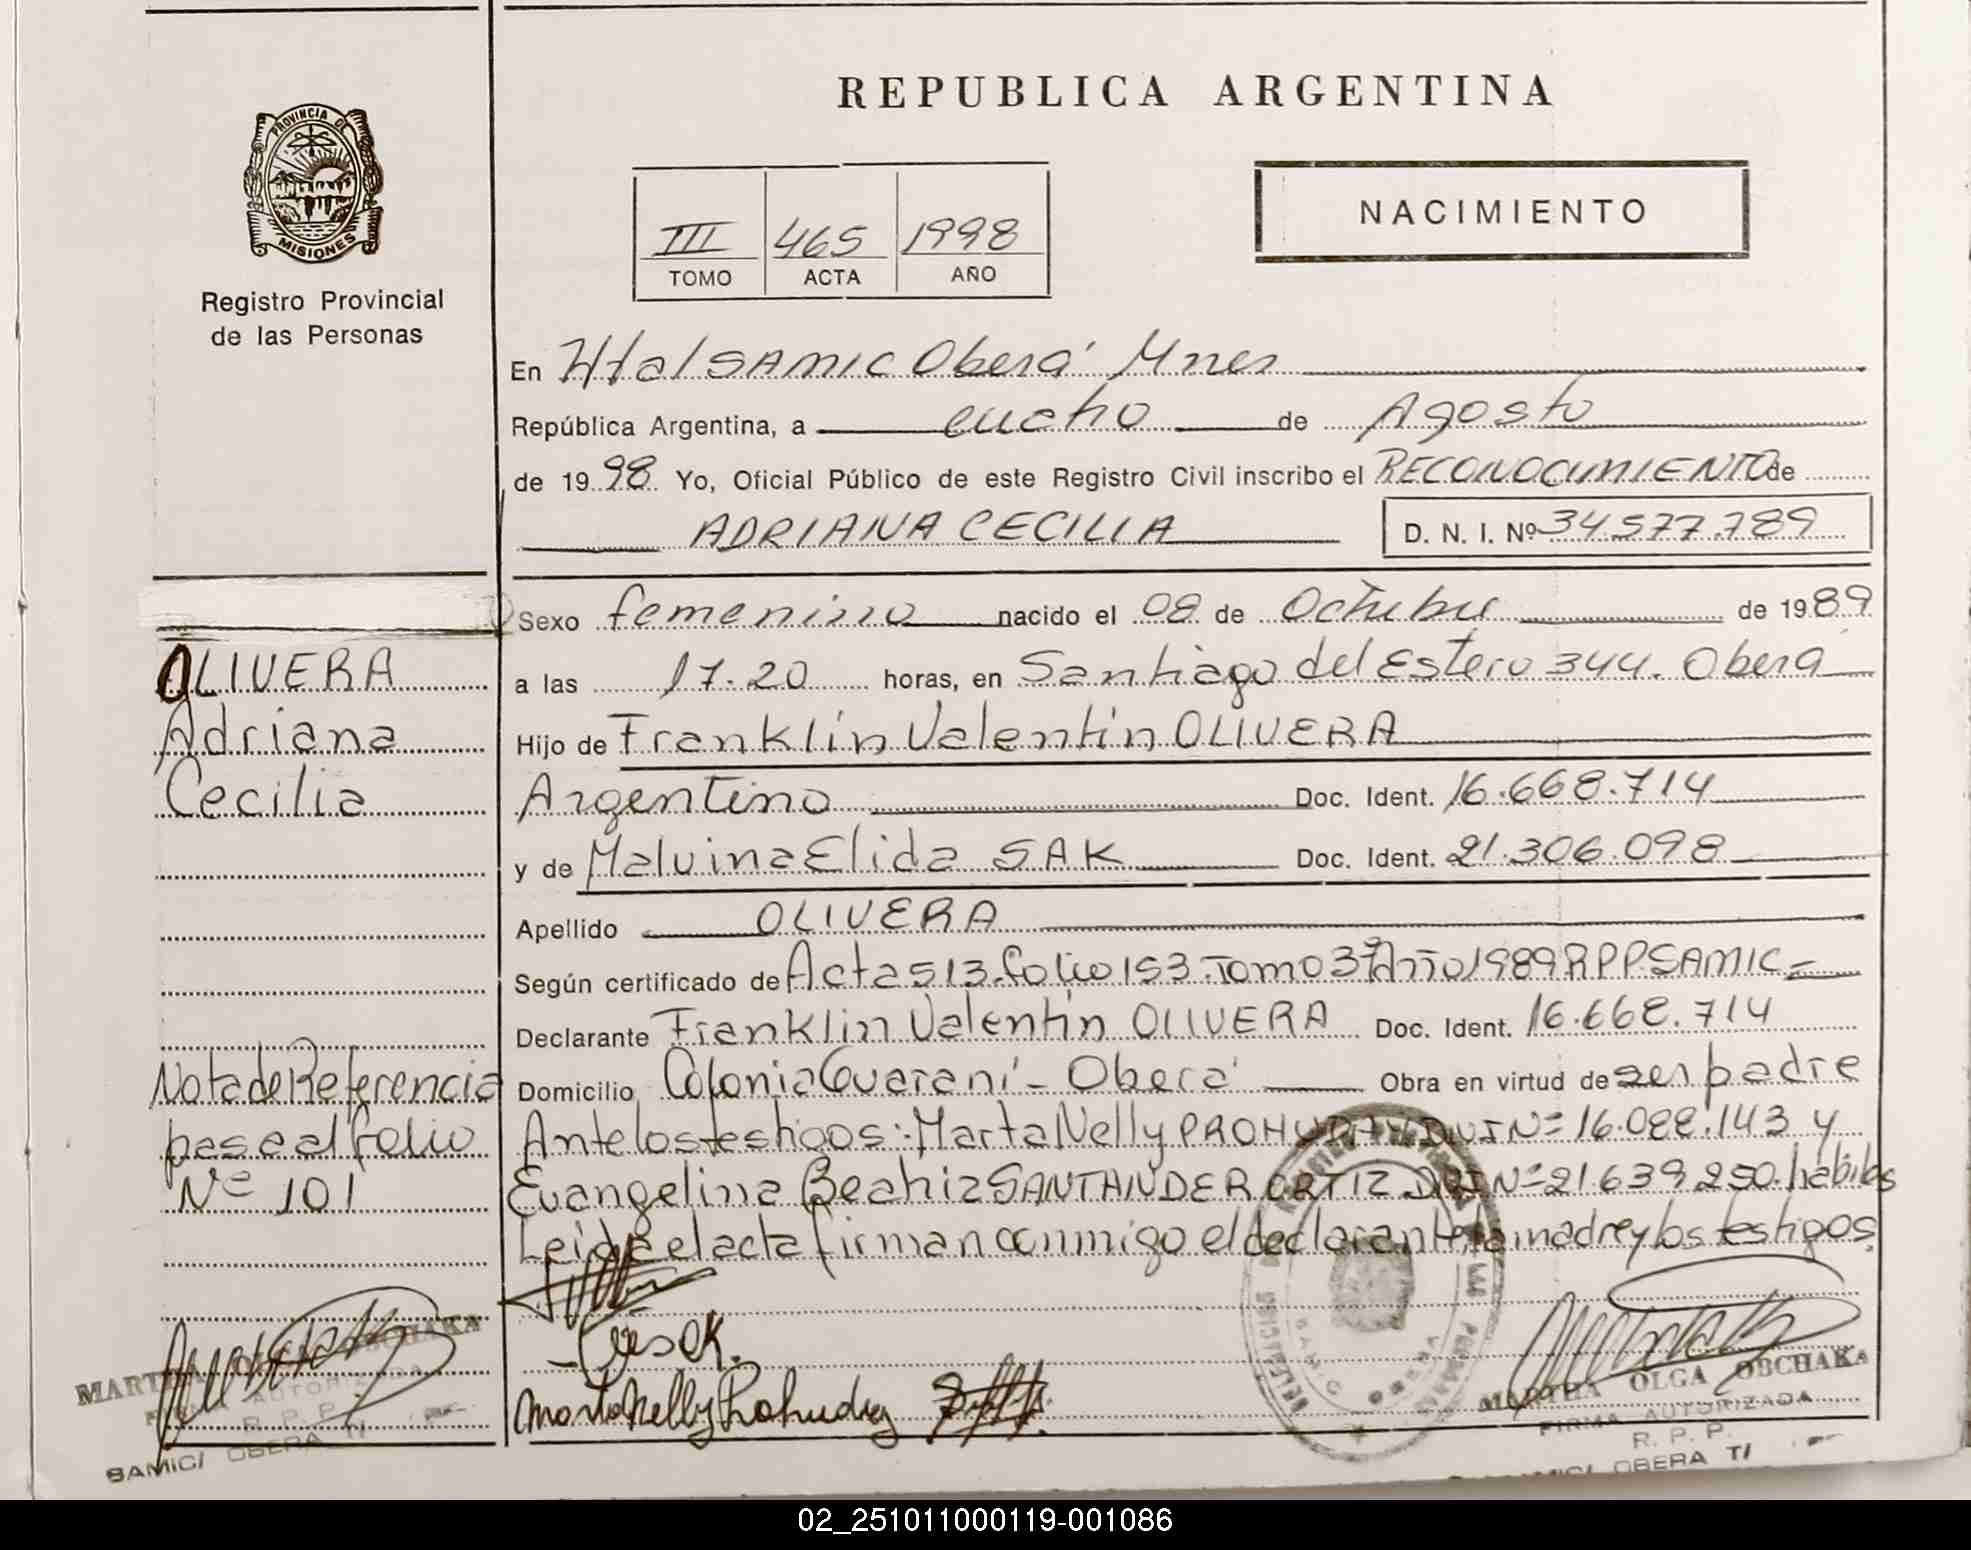 REPUBLICA ARGENTINA
PROVINCIA DE
MISIONES
Registro Provincial
de las Personas
III 465 1998
TOMO ACTA AÑO
NACIMIENTO
En Htal SAMIC Oberá Mnes
República Argentina, a ocho de Agosto
de 1998 Yo, Oficial Público de este Registro Civil inscribo el RECONOCIMIENTO de
ADRIANA CECILIA D. N. I. Nº 34.577.789
Sexo femenino nacido el 08 de Octubre de 1989
a las 17.20 horas, en Santiago del Estero 344. Oberá
Hijo de Franklin Valentin OLIVERA
Argentino Doc. Ident. 16.668.714
y de Malvina Elida SAK Doc. Ident. 21.306.098
Apellido OLIVERA
Según certificado de Acta 513.folio 153.Tomo 3º Año 1989 RPPSAMIC=
Declarante Franklin Valentin OLIVERA Doc. Ident. 16.668.714
Domicilio Colonia Guaraní - Oberá Obra en virtud de ser padre
Ante los testigos: Marta Nelly PROHUDA DNI Nº 16.088.143 y
Evangelina Beatriz SANTANDER ORTIZ DNI Nº 21.639.250. hábiles
Leida el acta firman conmigo el declarante la madre y los testigos
OLIVERA
Adriana
Cecilia
Nota de Referencia
pase al folio
Nº 101
MARTHA OLGA OBCHAKA
FIRMA AUTORIZADA
R. P. P.
SAMIC/ OBERA T/
MARTHA OLGA OBCHAKA
FIRMA AUTORIZADA
R. P. P.
SAMIC/ OBERA T/
02_251011000119-001086